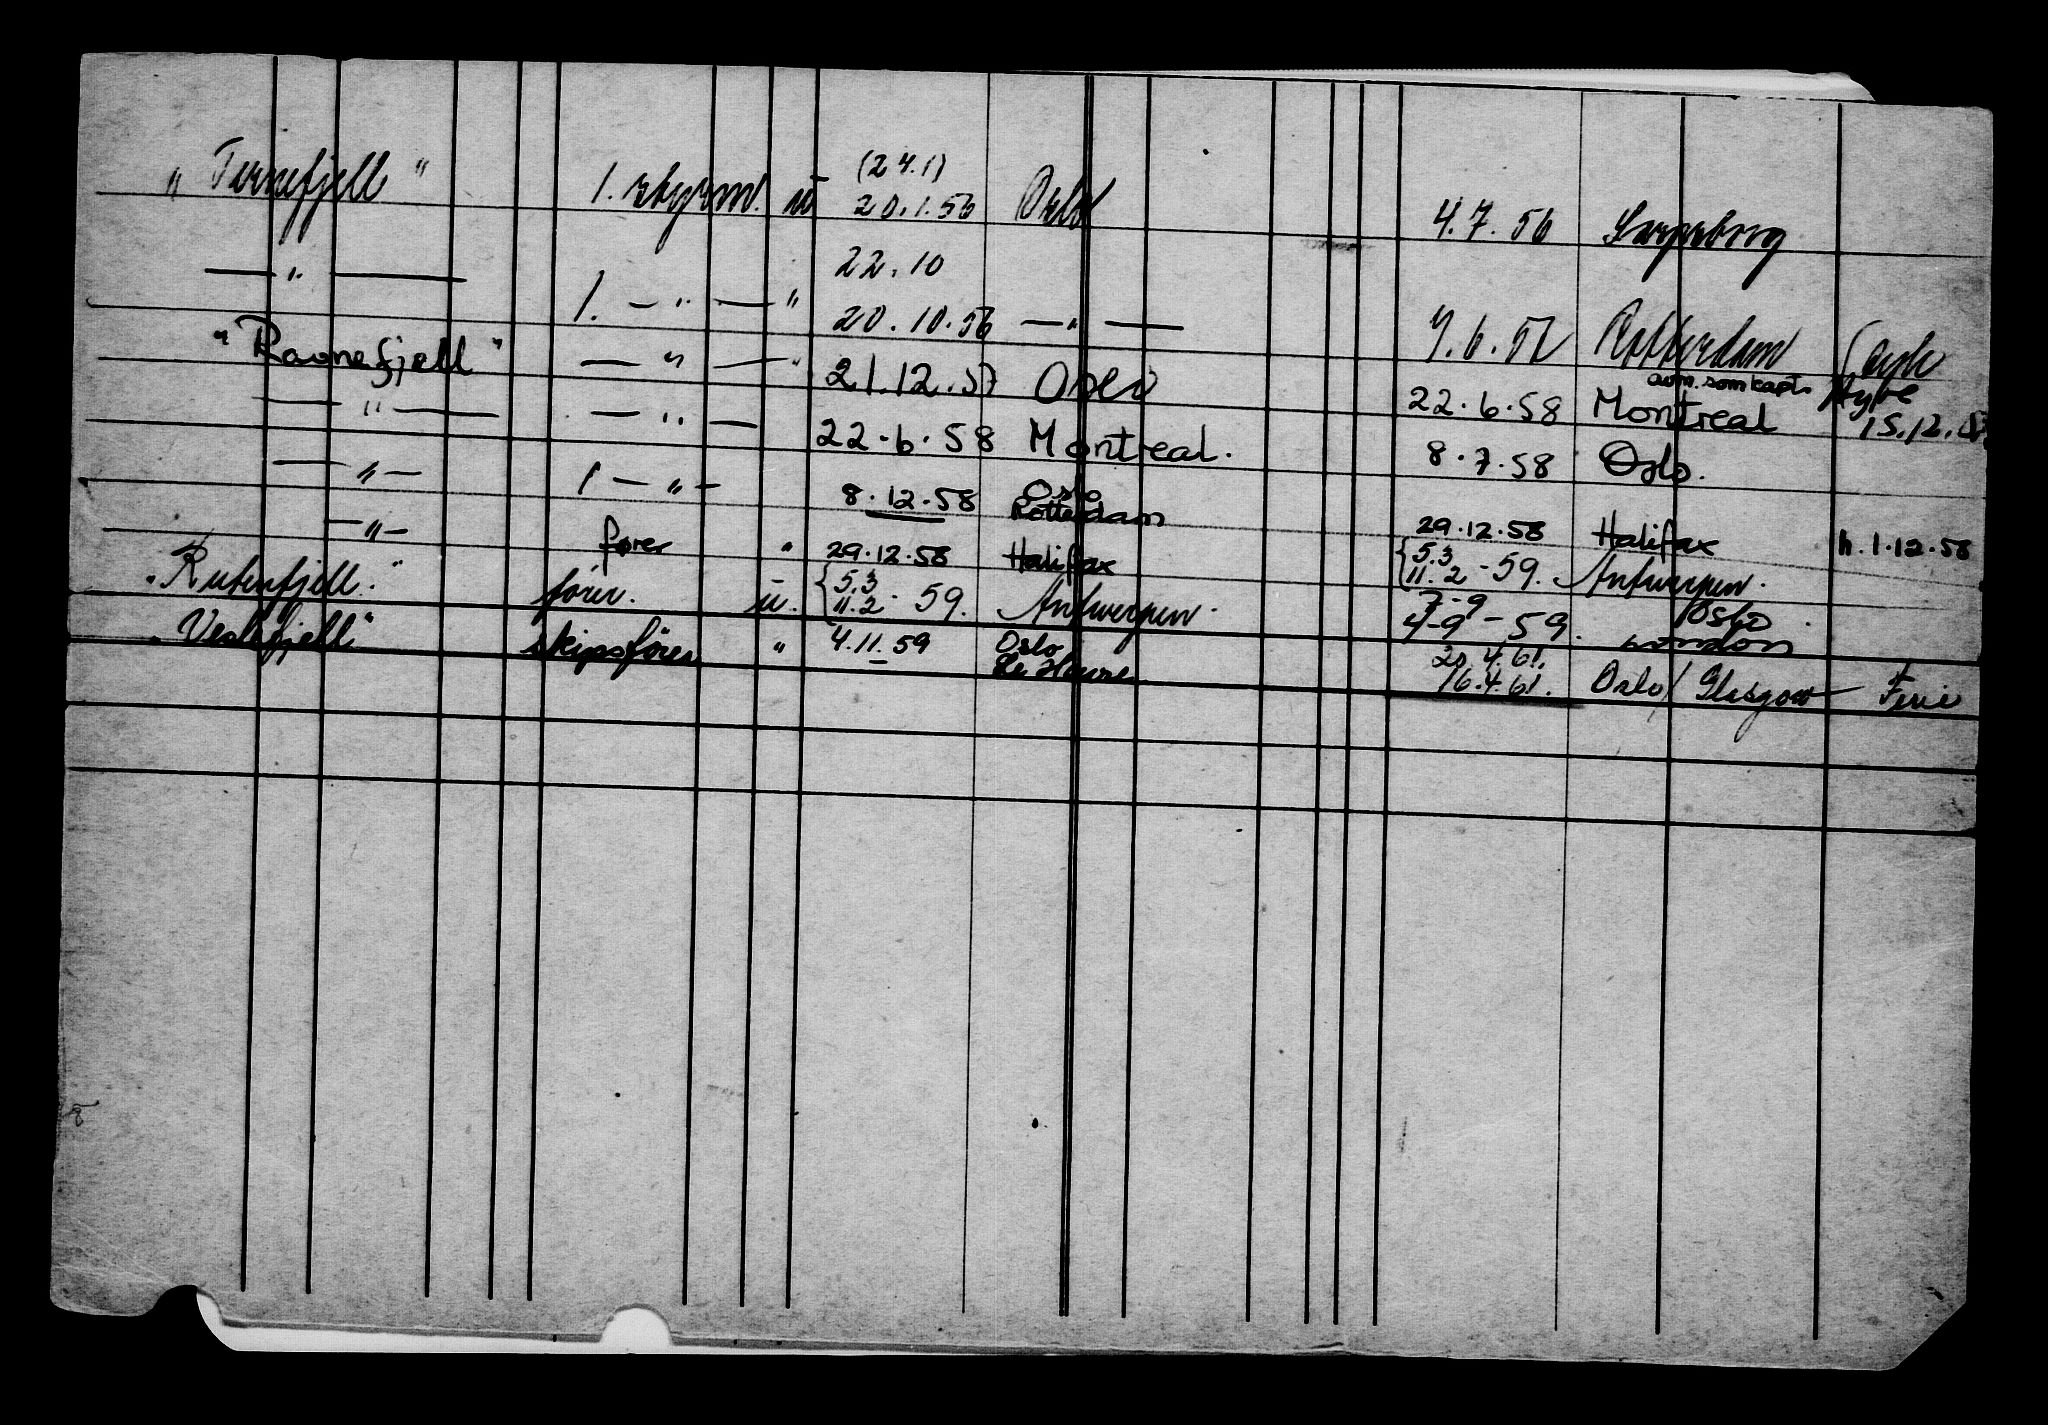 (24.1)
" Turnefjell " 1. styrm. u 20.1.56 Oslo 4.7.56 Sarpsborg
22.10
— " — 1. — " — " 20.10.56 — " — 7.6.57 Rotterdam
"Ravnefjell" — " — " 21.12.57 Oslo 22.6.58 Montreal avm. som kapt. 15.12.
— " — — " — 22.6.58 Montreal. 8.7.58 Oslo.
— " — 1 — " — 8.12.58 Oslo Rotterdam 29.12.58 Halifax h. 1.12.58
— " — fører " 29.12.58 Halifax { 5.3 11.2 - 59. Antwerpen.
"Rutenfjell." fører. u. { 5.3 11.2 - 59. Antwerpen. 7-9 4-9 - 59. Oslo London
"Vestefjell" skipsfører " 4.11.59 Oslo Le Havre 20.4.61. 16.4.61. Oslo / Glasgow — Ferie